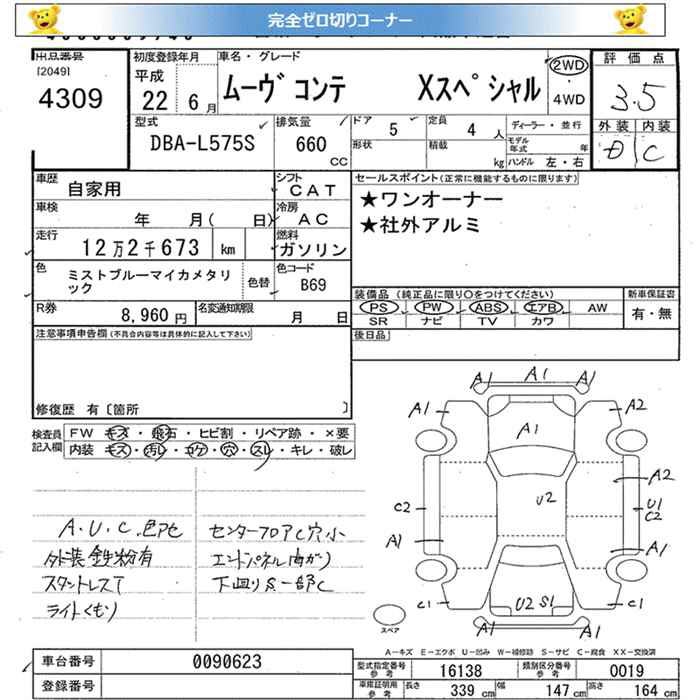 完全ゼロ切りコーナー
出品番号 初度登録年月 車名・グレード 評価点
[2049] 平成 ムーヴ コンテ Xスペシャル 2WD・4WD
4309 22年 6月 3.5
型式 排気量 ドア 5 定員 4人 ディーラー・並行 外装 内装
DBA-L575S 660cc 形状 積載 kg モデル年式 年 D C
ハンドル 左・右
車歴 自家用 シフト CAT セールスポイント(正常に機能するものに限ります)
車検 年 月( 日) 冷房 AC ★ワンオーナー
走行 12万2千673 km 燃料 ガソリン ★社外アルミ
色 ミストブルーマイカメタリック 色替 色コード B69
装備品(純正品に限り○をつけてください) 新車保証書
R券 8,960円 名変通知期限 月 日 PS PW ABS エアB AW 有・無
SR ナビ TV カワ
注意事項申告欄(不具合内容等は具体的に記入して下さい) 後日品
修復歴 有〔箇所 〕
検査員記入欄 FW キズ・飛石・ヒビ割・リペア跡・×要
内装 キズ・汚レ・コゲ・穴・スレ・キレ・破レ
A1 A1 A1
A1 A2
A1
A2
U2
C2 U1
C2
A1 A1
C1 U2 S1 C1
A1 A1
スペア
A.U.C.色アセ センターフロアC穴小
外装鉄粉有 エンドパネル曲がり
スタットレスT 下回りS一部C
ライトくもり
A-キズ E-エクボ U-凹み W-補修跡 S-サビ C-腐食 XX-交換済
車台番号 0090623
型式指定番号 参考 16138 類別区分番号 参考 0019
登録番号 車庫証明用 参考 長さ 339cm 幅 147cm 高さ 164cm